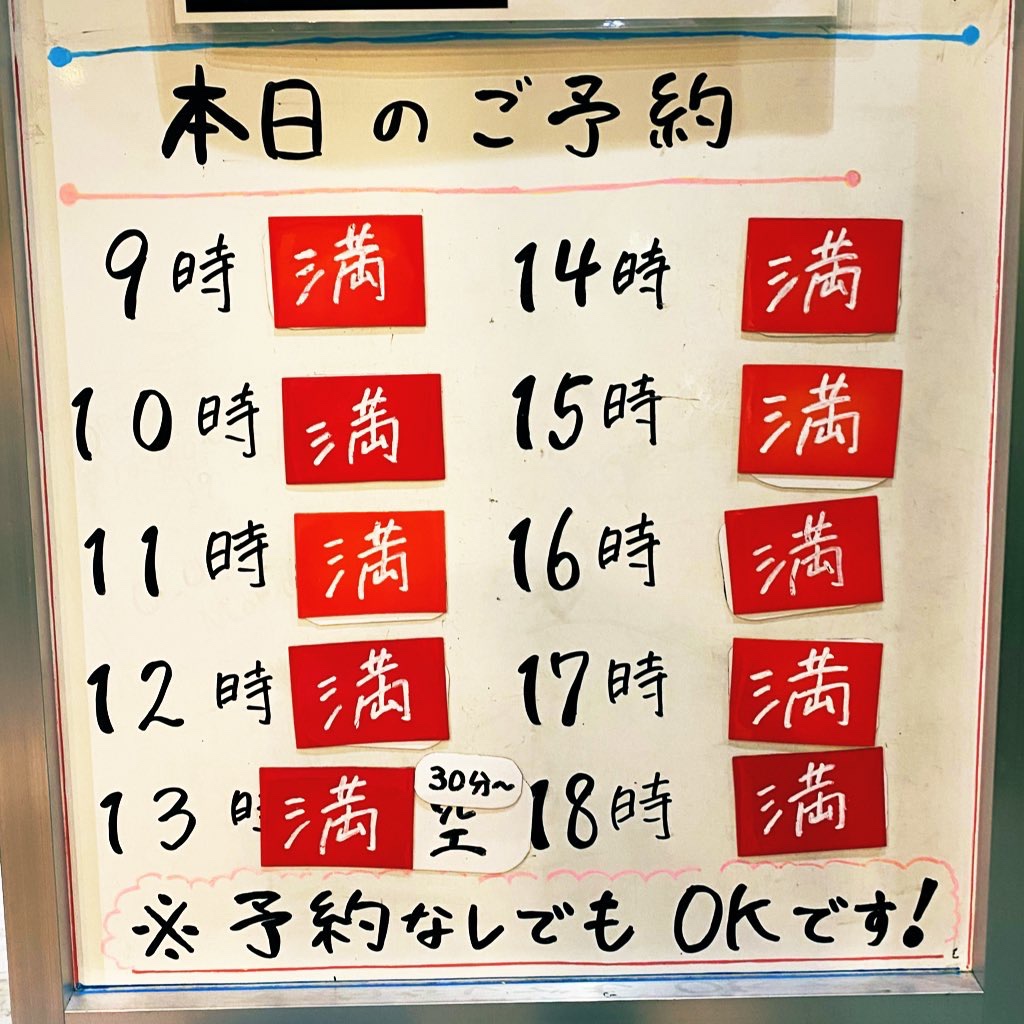 本日のご予約
9時 満
10時 満
11時 満
12時 満
13時 満 30分~ 空
14時 満
15時 満
16時 満
17時 満
18時 満
※予約なしでもOKです!